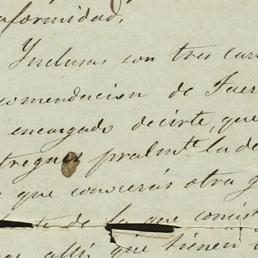 formidad.
Ynclusas son tres car
comendacion de Fuer
encargado decirte, que
tregues pralmte la de
que conocerás otra g
te de la que consist
allí que tienen